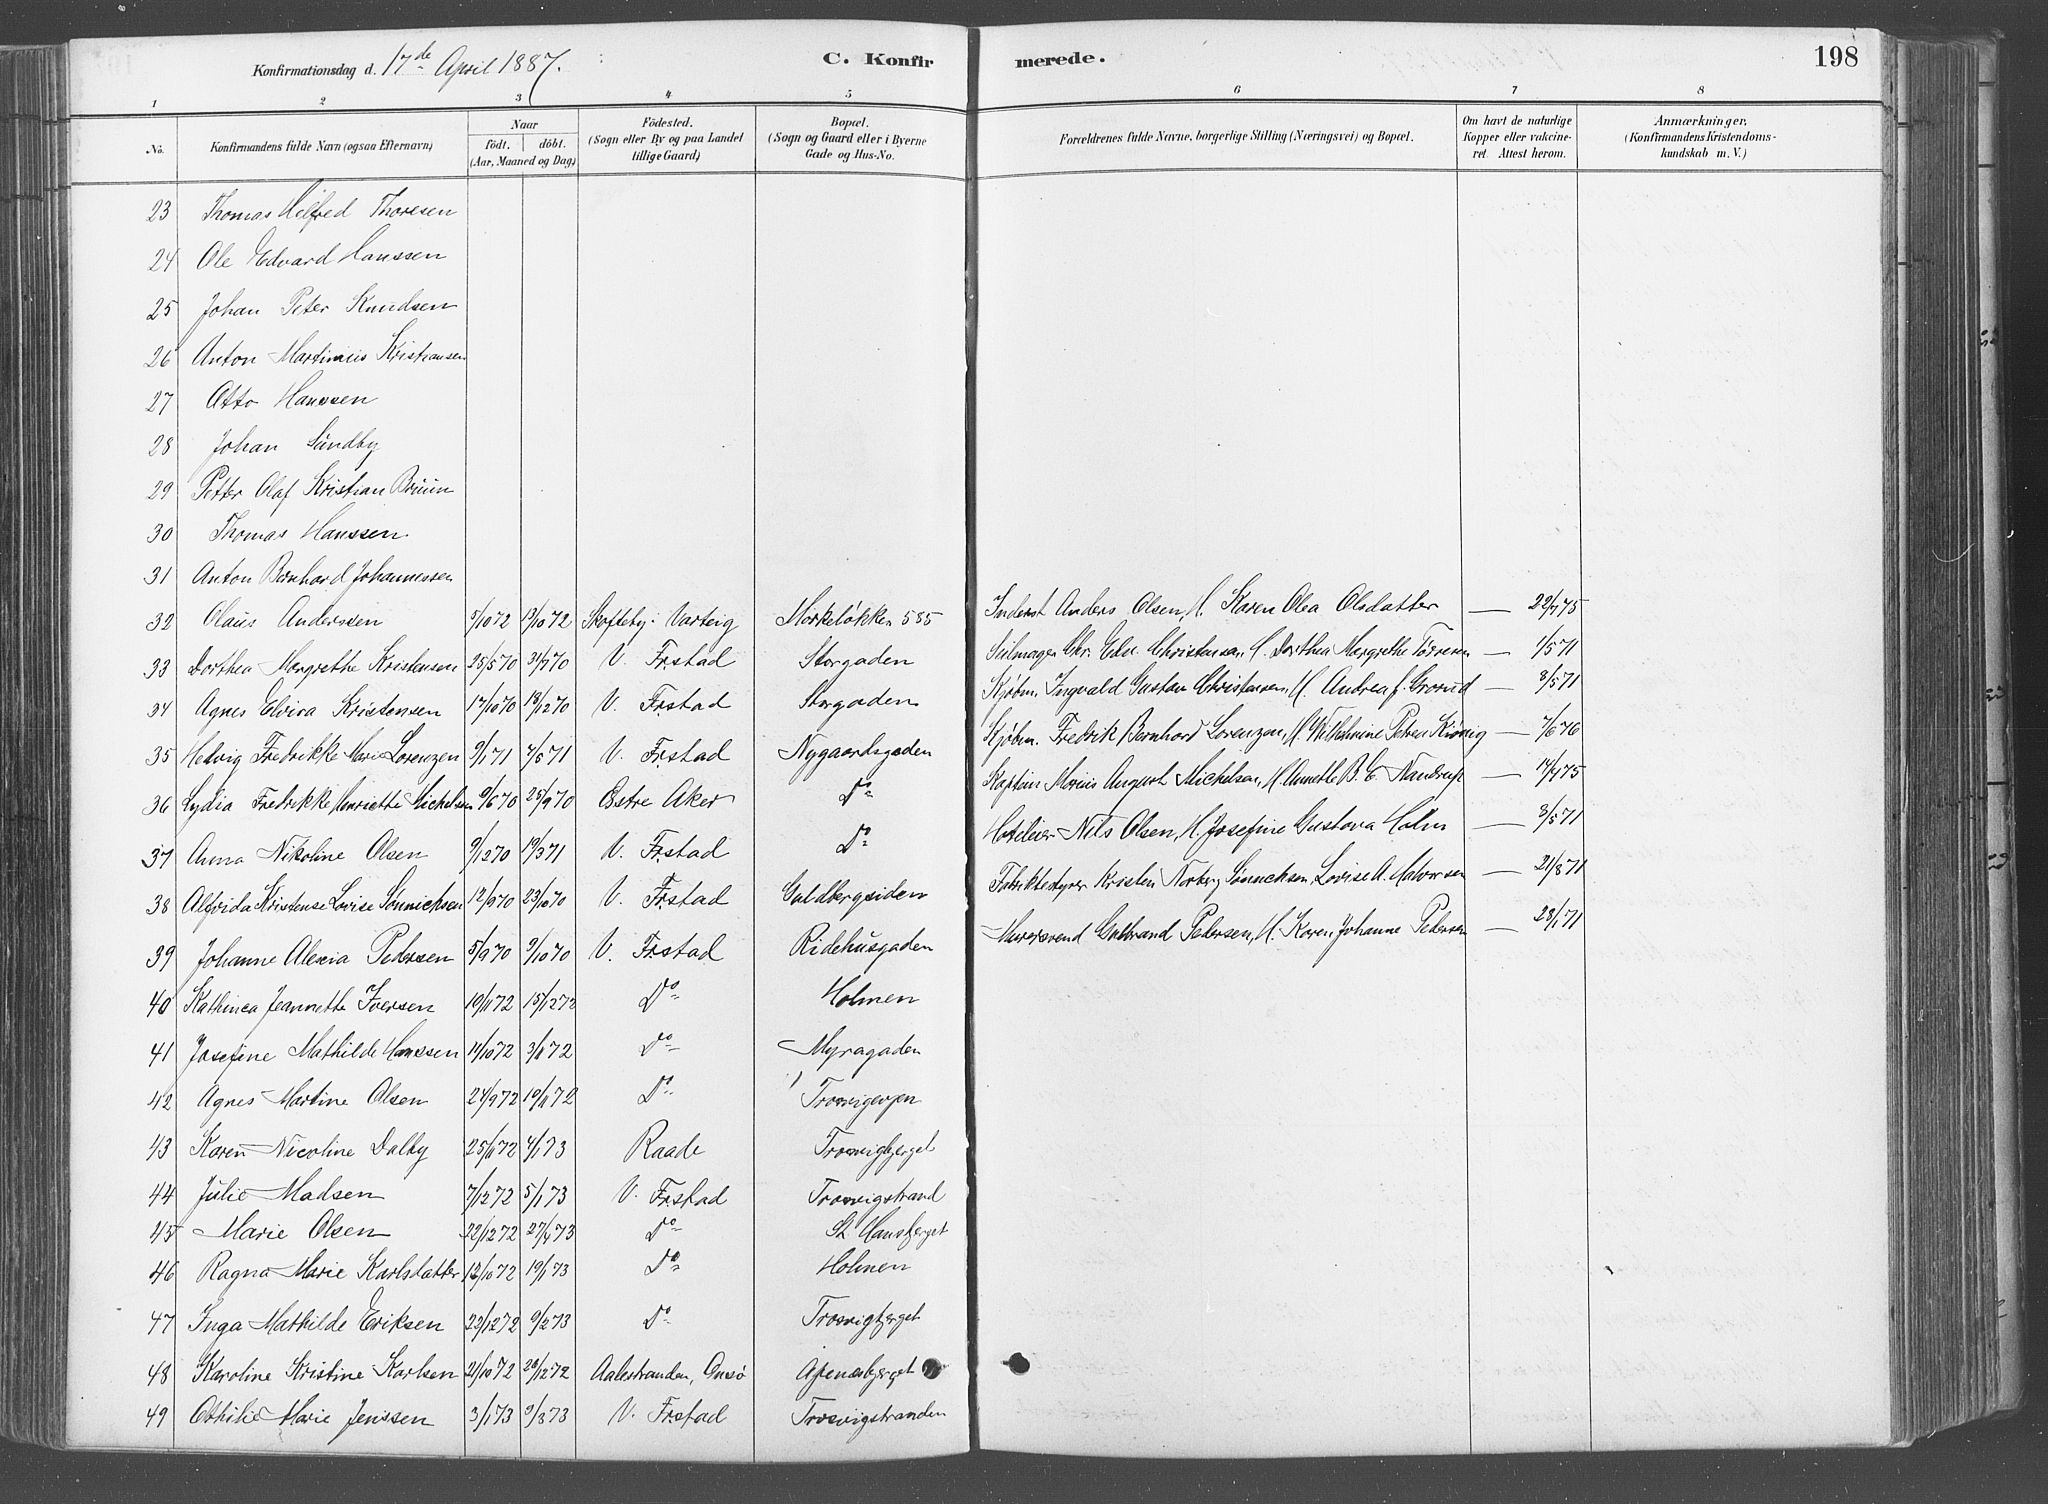 Konfirmationsdag d. 17de April 1887.
C. Konfirmerede.
198
1 2 3 4 5 6 7 8
No.
Konfirmandens fulde Navn (ogsaa Efternavn)
Naar
födt. döbt.
(Aar, Maaned og Dag)
Födested.
(Sogn eller By og paa Landet
tillige Gaard)
Bopæl.
(Sogn og Gaard eller i Byerne
Gade og Hus-No.
Forældrenes fulde Navne, borgerlige Stilling (Næringsvei) og Bopæl.
Om havt de naturlige
Kopper eller vakcine-
ret. Attest herom.
Anmærkninger,
(Konfirmandens Kristendoms-
kundskab m. V.)
23 Thomas Hilfred Thoresen
24 Ole Edvard Hanssen
25 Johan Peter Knudsen
26 Anton Martinius Kristiansen
27 Otto Hanssen
28 Johan Sundby
29 Petter Olaf Kristian Bruun
30 Thomas Hanssen
31 Anton Bernhard Johannessen
32 Olaus Anderssen 5/10 72 13/10 72 Skofteby. Varteig Mørkeløkken 585 Inderst Anders Olsen, H. Karen Olea Olsdatter — 22/7 75
33 Dorthea Margrethe Kristensen 25/5 70 31/7 70 V. Frstad Storgaden Seilmager Chr. Edv. Christensen, H. Dorthea Margrethe Törresen — 1/5 71
34 Agnes Elvira Kristensen 17/10 70 18/12 70 V. Frstad Storgaden Kjøbm. Ingvald Gustav Christensen, H. Andrea J. Grorud — 3/5 71
35 Hedvig Fredrikke Marie Lorenzen 9/1 71 7/5 71 V. Frstad Nygaardsgaden Kjøbm. Fredrik Bernhard Lorenzen, H. Wilhelmine Petrea — 7/6 76
36 Lydia Fredrikke Henriette Michelsen 9/6 70 25/9 70 Østre Aker Do Kaptein Marius August Michelsen, H. Annette B. C. — 14/4 75
37 Anna Nikoline Olsen 9/12 70 19/3 71 V. Frstad Do Hotelier Nils Olsen, H. Josefine Gustava Holm — 3/5 71
38 Alfrida Kristense Lovise Sönnichsen 12/9 70 23/10 70 V. Frstad Guldbergsiden Fabrikbestyrer Kristen Norberg Sönnichsen, Lovise A. Halvorsen — 21/8 71
39 Johanne Alexia Pedersen 5/9 70 9/10 70 V. Frstad Ridehusgaden Murersvend Gulbrand Pedersen, H. Karen Johanne Pedersen — 23/1 71
40 Kathinca Jeannette Iversen 10/11 72 15/12 72 Do Holmen
41 Josefine Mathilde Hanssen 14/10 72 3/11 72 Do Myragaden
42 Agnes Martine Olsen 24/9 72 10/11 72 Do Trosvigvejen
43 Karen Nicoline Dalby 25/11 72 4/1 73 Raade Trosvigbjerget
44 Julie Madsen 7/12 72 5/1 73 V. Frstad Trosvigstrand
45 Marie Olsen 22/12 72 27/4 73 Do St. Hansberget
46 Ragna Marie Karlsdatter 12/10 72 19/1 73 Do Holmen
47 Inga Mathilde Eriksen 22/12 72 9/2 73 Do Trosvigbjerget
48 Karoline Kristine Karlsen 21/10 72 26/12 72 Aalestranden, Onsö Apenæsbjerget
49 Othilie Marie Jenssen 3/1 73 9/3 73 V. Frstad Trosvigstranden